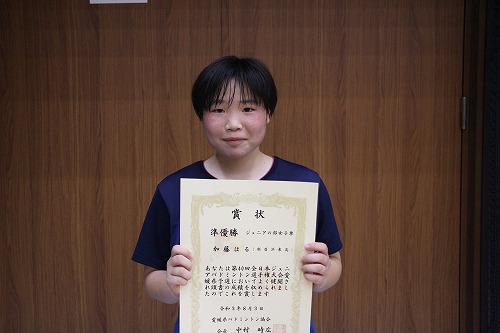 賞状
準優勝 ジュニアの部女子単
加藤はる
あなたは第40回全日本ジュニ
アバドミントン選手権大会愛
媛県予選においてよく健闘さ
れ頭書の成績を収められまし
たのでこれを賞します
令和3年8月3日
愛媛県バドミントン協会
会長 中村 時広